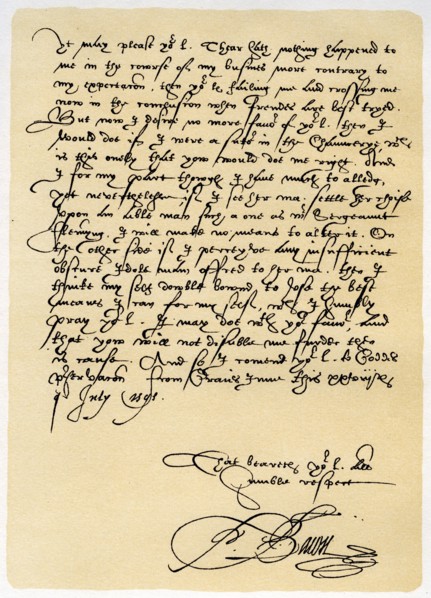 It may please yor L. Thear hath nothing happened to
me in the course of my busines more contrary to
my expectacion, then yor L. failing me and crossing me
now in the conclusion when frendes are best tryed.
But now I desire no more favor of yor L. then I
would doe if I were a sutor in the Chauncerye, wch
is this onely that yow would doe me right. And
I for my part though I have much to alledg,
yet nevertheless if I see her ma. settle her choise
upon an able man such a one as Mr Sergeaunt
Flemyng, I will make no meanes to alter it. On
the other side if I perceyve any insufficient
obscure man offred to her ma. then I
think my self double bound to use the best
meanes I can for my self, wch I humbly
pray yor L. I may doe wth yor favor. And
that yow will not disable me furder then
is cause. And so I comend yor L. to Godds
preservacion from Graies Inne this
of July
That beareth yor L. all
humble respect
F. Bacon